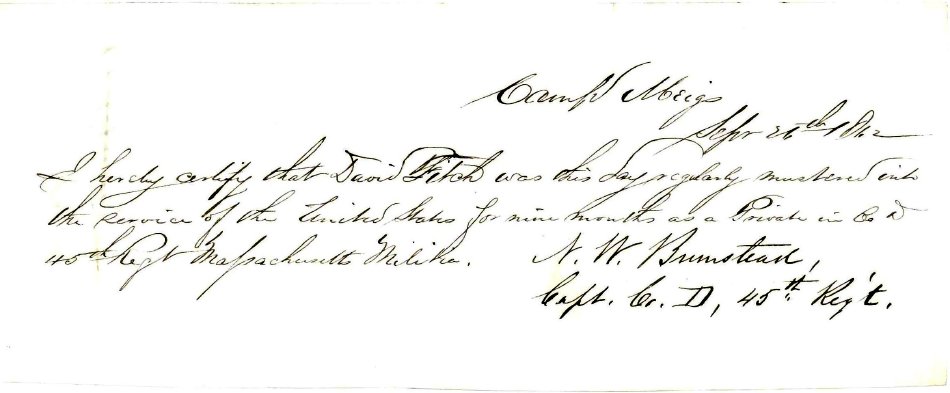 Camp Meigs
Sepr 26th 1862
I hereby certify that David Fitch was this day regularly mustered into
the service of the United States for nine months as a Private in Co D
45th Regt Massachusetts Militia. N. W. Bumstead,
Capt. Co. D, 45th. Reg't.